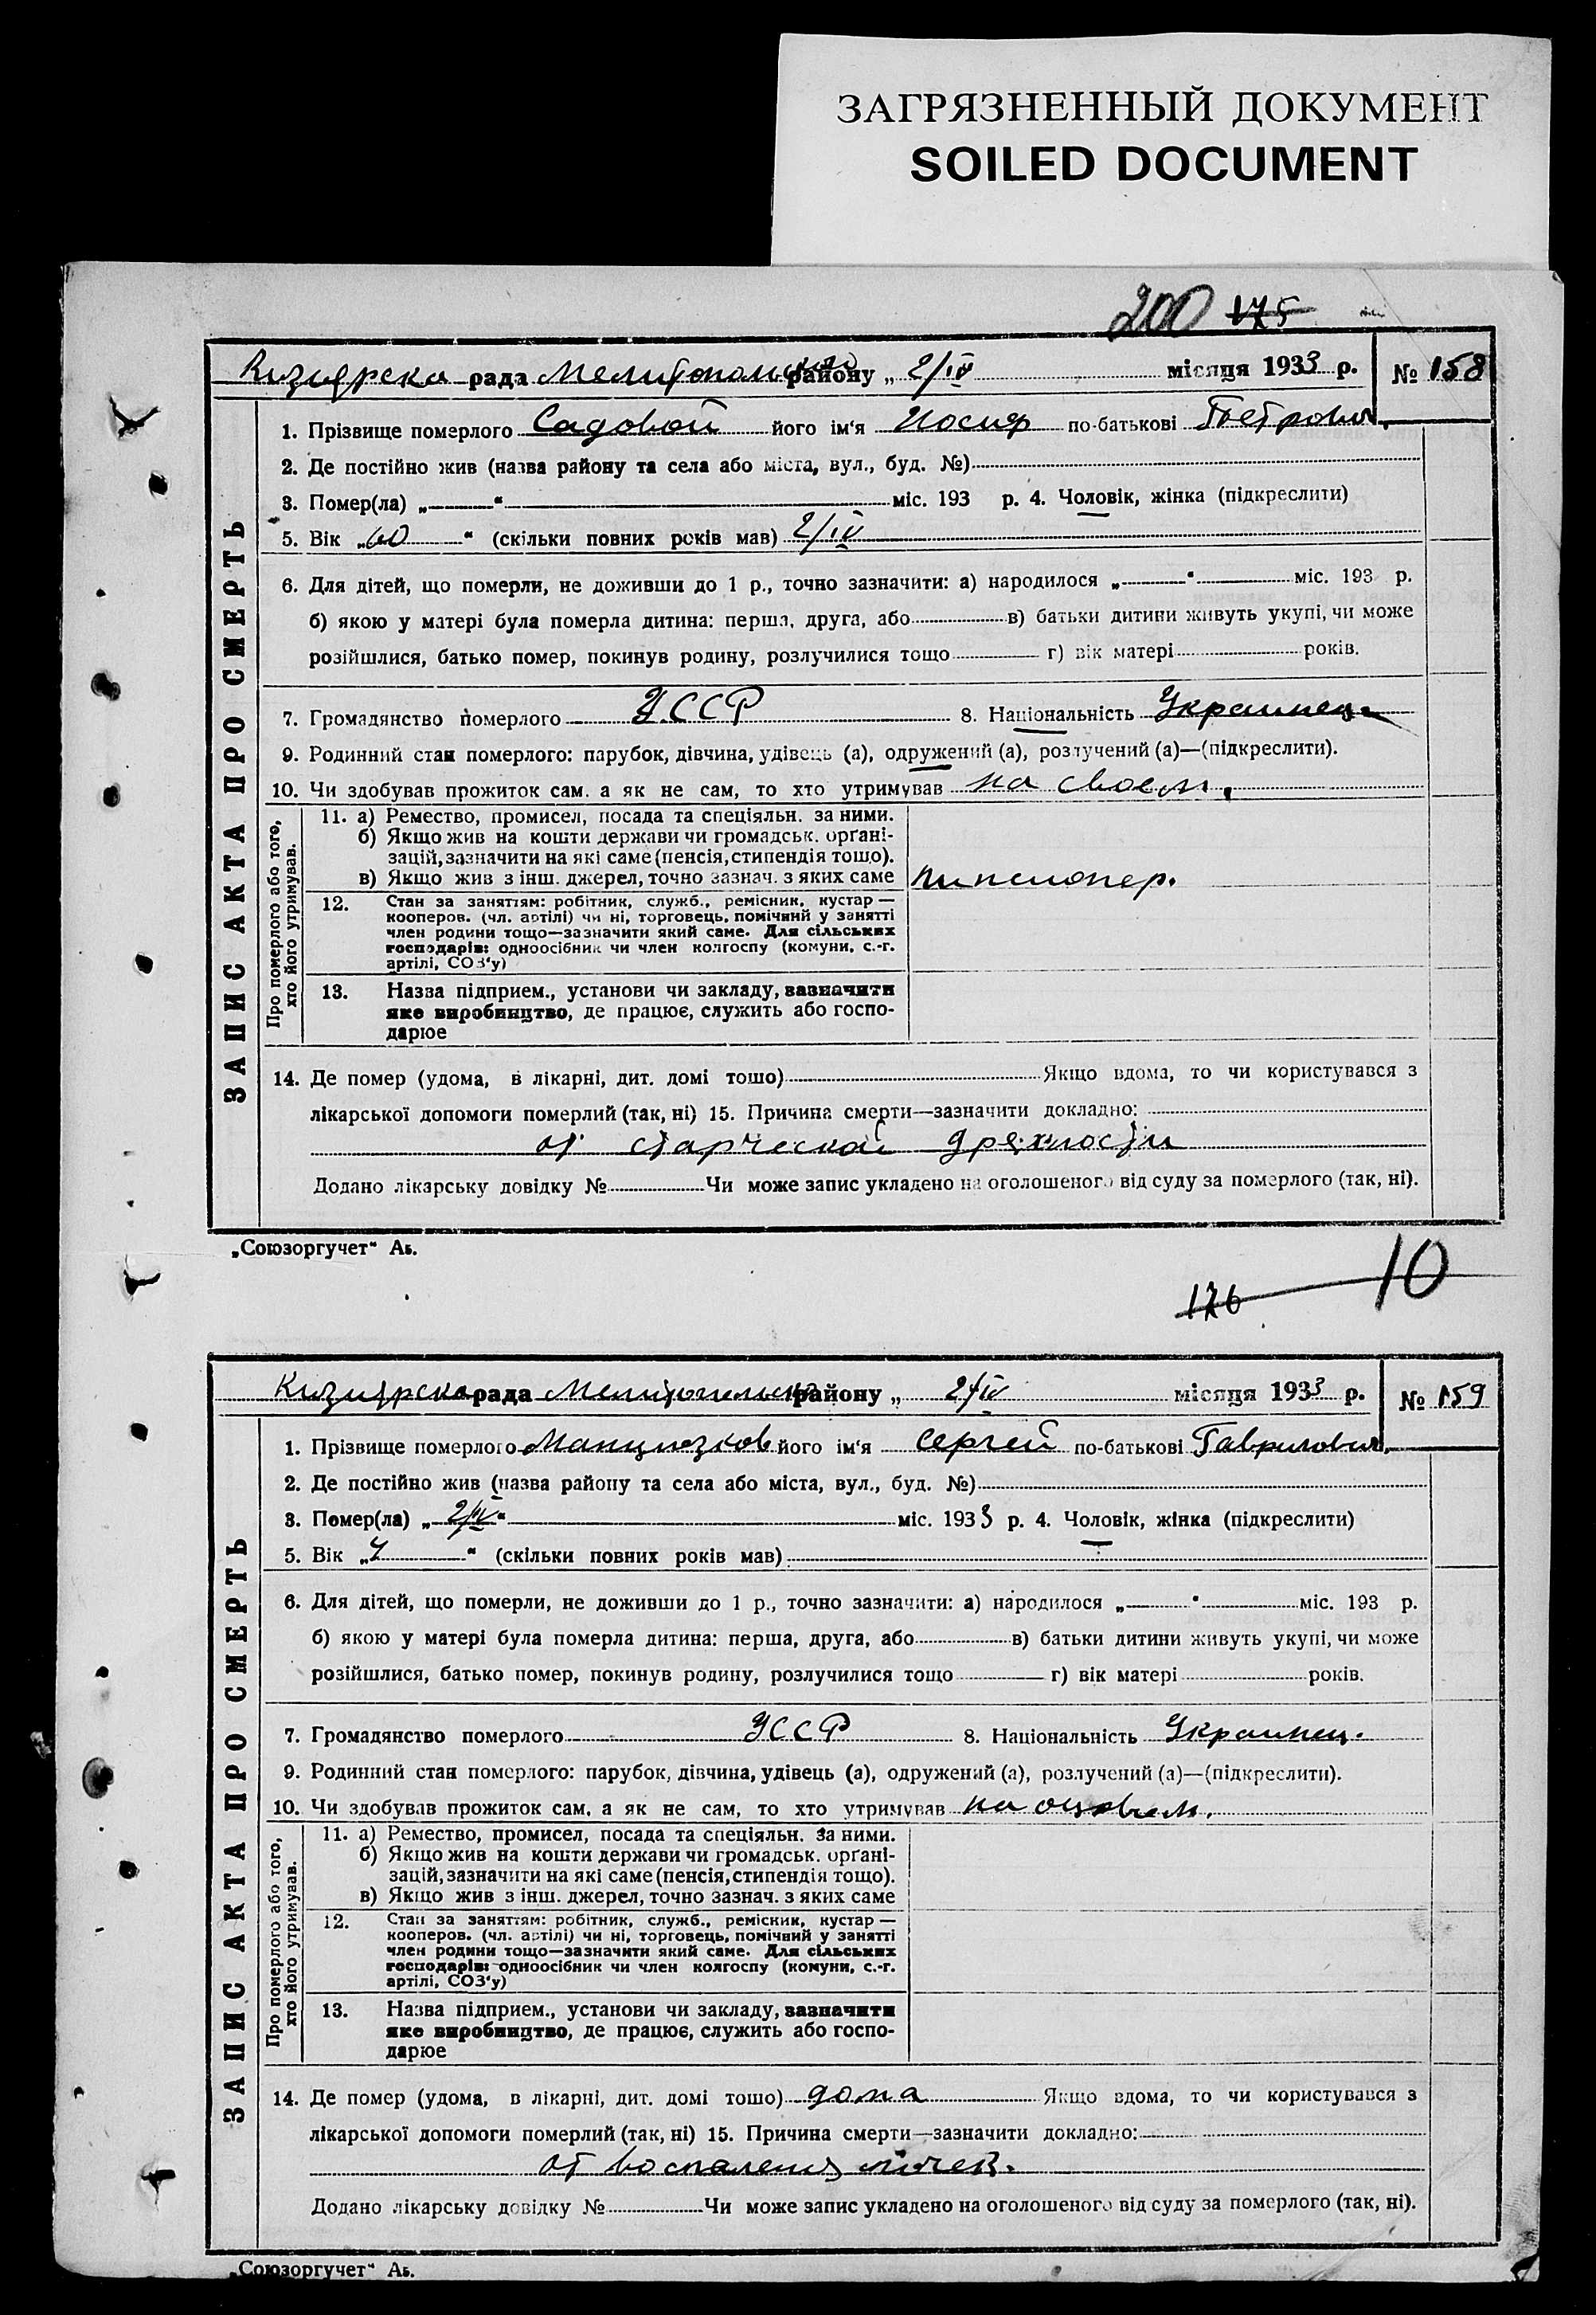 ЗАГРЯЗНЕННЫЙ ДОКУМЕНТ
SOILED DOCUMENT
200 175
Кизиярска рада Мелитопольского району „ 2/IV місяця 1933 р. № 158
ЗАПИС АКТА ПРО СМЕРТЬ
1. Прізвище померлого Садовой його ім'я Иосиф по-батькові Петрович.
2. Де постійно жив (назва району та села або міста, вул., буд. №)
3. Помер(ла) „ “ міс. 193 р. 4. Чоловік, жінка (підкреслити)
5. Вік „60 “ (скільки повних років мав) 2/IV
6. Для дітей, що померли, не доживши до 1 р., точно зазначити: а) народилося „ “ міс. 193 р.
б) якою у матері була померла дитина: перша, друга, або в) батьки дитини живуть укупі, чи може
розійшлися, батько помер, покинув родину, розлучилися тощо г) вік матері років.
7. Громадянство померлого УССР 8. Національність Украинец.
9. Родинний стан померлого: парубок, дівчина, удівець (а), одружений (а), розлучений (а)—(підкреслити).
10. Чи здобував прожиток сам, а як не сам, то хто утримував на своем.
Про померлого або того,
хто його утримував.
11. а) Ремество, промисел, посада та спеціяльн. за ними.
б) Якщо жив на кошти держави чи громадськ. орґані-
зацій, зазначити на які саме (пенсія, стипендія тощо).
в) Якщо жив з інш. джерел, точно зазнач. з яких саме пинсионер.
12. Стан за заняттям: робітник, служб., ремісник, кустар —
кооперов. (чл. артілі) чи ні, торговець, помічний у занятті
член родини тощо—зазначити який саме. Для сільських
господарів: одноосібник чи член колгоспу (комуни, с.-г.
артілі, СОЗ'у)
13. Назва підприєм., установи чи закладу, зазначити
яке виробництво, де працює, служить або госпо-
дарює
14. Де помер (удома, в лікарні, дит. домі тощо) Якщо вдома, то чи користувався з
лікарської допомоги померлий (так, ні) 15. Причина смерти—зазначити докладно:
от старческой дряхлости
Додано лікарську довідку № Чи може запис укладено на оголошеного від суду за померлого (так, ні).
„Союзоргучет“ Аб.
176 10
Кизиярска рада Мелитопольск району „ 2/IV місяця 1933 р. № 159
ЗАПИС АКТА ПРО СМЕРТЬ
1. Прізвище померлого його ім'я Сергей по-батькові Гаврилович.
2. Де постійно жив (назва району та села або міста, вул., буд. №)
3. Помер(ла) „ 2/IV “ міс. 1933 р. 4. Чоловік, жінка (підкреслити)
5. Вік „ “ (скільки повних років мав)
6. Для дітей, що померли, не доживши до 1 р., точно зазначити: а) народилося „ “ міс. 193 р.
б) якою у матері була померла дитина: перша, друга, або в) батьки дитини живуть укупі, чи може
розійшлися, батько помер, покинув родину, розлучилися тощо г) вік матері років.
7. Громадянство померлого УССР 8. Національність Украинец.
9. Родинний стан померлого: парубок, дівчина, удівець (а), одружений (а), розлучений (а)—(підкреслити).
10. Чи здобував прожиток сам, а як не сам, то хто утримував на отцовем.
Про померлого або того,
хто його утримував.
11. а) Ремество, промисел, посада та спеціяльн. за ними.
б) Якщо жив на кошти держави чи громадськ. орґані-
зацій, зазначити на які саме (пенсія, стипендія тощо).
в) Якщо жив з інш. джерел, точно зазнач. з яких саме
12. Стан за заняттям: робітник, служб., ремісник, кустар —
кооперов. (чл. артілі) чи ні, торговець, помічний у занятті
член родини тощо—зазначити який саме. Для сільських
господарів: одноосібник чи член колгоспу (комуни, с.-г.
артілі, СОЗ'у)
13. Назва підприєм., установи чи закладу, зазначити
яке виробництво, де працює, служить або госпо-
дарює
14. Де помер (удома, в лікарні, дит. домі тощо) дома Якщо вдома, то чи користувався з
лікарської допомоги померлий (так, ні) 15. Причина смерти—зазначити докладно:
от воспаления
Додано лікарську довідку № Чи може запис укладено на оголошеного від суду за померлого (так, ні).
„Союзоргучет“ Аб.